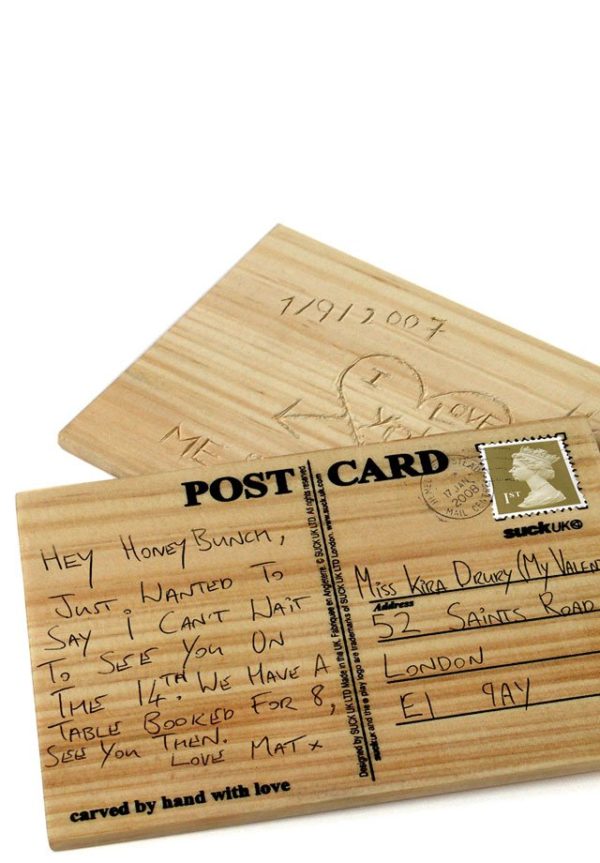 1/9/2007
I
LOVE
YOU
ME
POST CARD
1ST
17 JAN
2008
MAIL
suck UK©
HEY HONEYBUNCH,
JUST WANTED TO
SAY I CAN'T WAIT
TO SEE YOU ON
THE 14TH. WE HAVE A
TABLE BOOKED FOR 8,
SEE YOU THEN.
LOVE MAT x
carved by hand with love
Designed by SUCK UK LTD Made in the UK. Fabriquee en Angleterre. © SUCK UK LTD. All rights reserved
suckuk and the play logo are trademarks of SUCK UK LTD London. www.suckuk.com
MISS KIRA DRURY (MY VALEN
Address
52 SAINTS ROAD
LONDON
E1 9AY